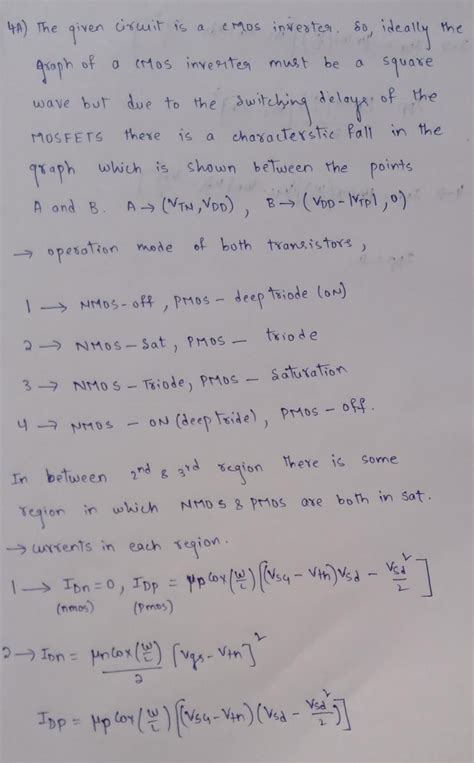 4A) The given circuit is a CMOS inverter. So, ideally the
graph of a CMOS inverter must be a square
wave but due to the switching delays of the
MOSFETS there is a characterstic fall in the
graph which is shown between the points
A and B. A → (VTN, VDD), B → (VDD - |VTP|, 0)
→ operation mode of both transistors,
1 → NMOS-off, PMOS - deep triode (ON)
2 → NMOS - Sat, PMOS - triode
3 → NMOS - Triode, PMOS - Saturation
4 → NMOS - ON (deep tride), PMOS - off.
In between 2nd & 3rd region there is some
region in which NMOS & PMOS are both in sat.
→ currents in each region.
1 → IDn = 0, IDp = μp Cox (W/L) [(VSG - Vth) Vsd - Vsd²/2]
(nmos) (pmos)
2 → IDn = μn Cox (W/L)/2 [Vgs - Vtn]²
IDp = μp Cox (W/L) [(VSG - Vtn) (Vsd - Vsd²/2)]